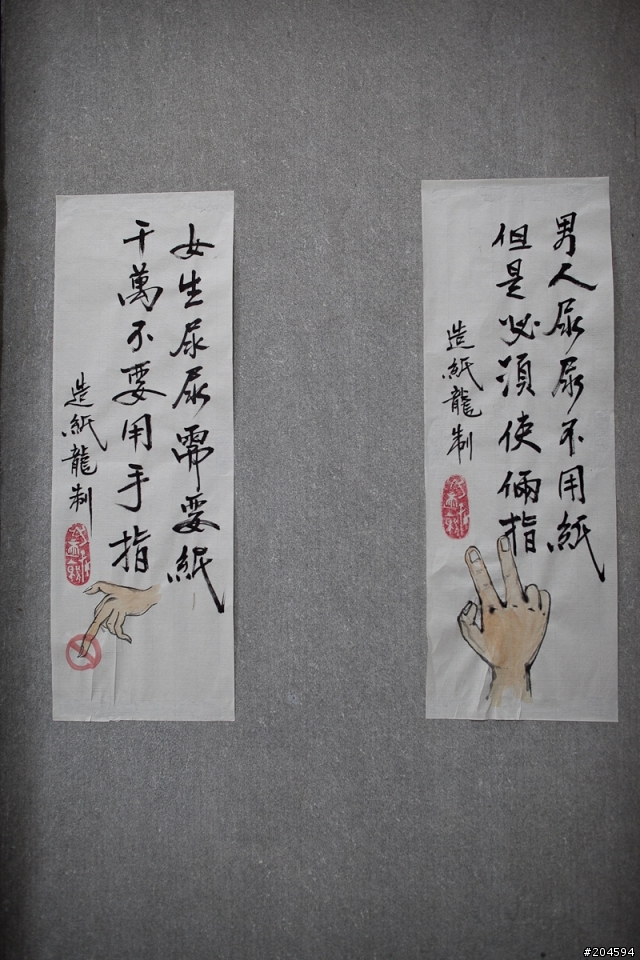 男人尿尿不用紙
但是必須使倆指
造紙龍制
女生尿尿需要紙
千萬不要用手指
造紙龍制
#204594